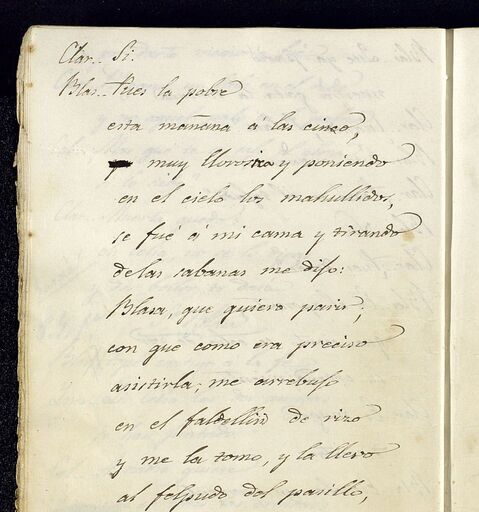 Clar. Si.
Blas. Pues la pobre
esta mañana á las cinco,
muy llorosica y poniendo
en el cielo los mahullidos,
se fué á mi cama y tirando
de las sabanas me dijo:
Blasa, que quiero parir;
con que como era preciso
asistirla; me arrebujo
en el faldellin de rizo
y me la tomo, y la llevo
al felpudo del pasillo,